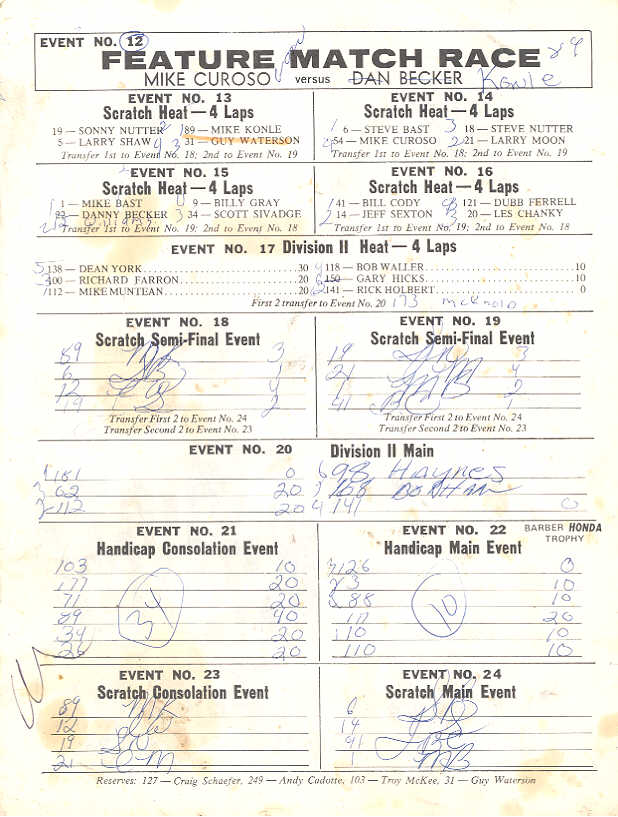 EVENT NO. 12
FEATURE MATCH RACE
MIKE CUROSO versus DAN BECKER Konle
EVENT NO. 13
Scratch Heat — 4 Laps
19 — SONNY NUTTER 89 — MIKE KONLE
5 — LARRY SHAW 31 — GUY WATERSON
Transfer 1st to Event No. 18; 2nd to Event No. 19
EVENT NO. 14
Scratch Heat — 4 Laps
6 — STEVE BAST 18 — STEVE NUTTER
54 — MIKE CUROSO 21 — LARRY MOON
Transfer 1st to Event No. 18; 2nd to Event No. 19
EVENT NO. 15
Scratch Heat — 4 Laps
1 — MIKE BAST 9 — BILLY GRAY
22 — DANNY BECKER 34 — SCOTT SIVADGE
Transfer 1st to Event No. 19; 2nd to Event No. 18
EVENT NO. 16
Scratch Heat — 4 Laps
41 — BILL CODY 121 — DUBB FERRELL
14 — JEFF SEXTON 20 — LES CHANKY
Transfer 1st to Event No. 19; 2nd to Event No. 18
EVENT NO. 17 Division II Heat — 4 Laps
138 — DEAN YORK 30 118 — BOB WALLER 10
100 — RICHARD FARRON 20 150 — GARY HICKS 10
112 — MIKE MUNTEAN 20 141 — RICK HOLBERT 0
First 2 transfer to Event No. 20 173
EVENT NO. 18
Scratch Semi-Final Event
89 3
6 1
12 4
14 2
Transfer First 2 to Event No. 24
Transfer Second 2 to Event No. 23
EVENT NO. 19
Scratch Semi-Final Event
19 3
21 4
1 2
41 1
Transfer First 2 to Event No. 24
Transfer Second 2 to Event No. 23
EVENT NO. 20 Division II Main
181 0 6 98 Haynes
62 20 168 BONHAM
2 112 20 4 141 0
EVENT NO. 21
Handicap Consolation Event
103 10
177 20
71 20
89 40
34 20
26 20
EVENT NO. 22
BARBER HONDA TROPHY
Handicap Main Event
126 0
3 10
88 10
20
10 10
110 10
10
EVENT NO. 23
Scratch Consolation Event
89 MK
12
19
21 LM
EVENT NO. 24
Scratch Main Event
6 SB
14
41
1 MB
Reserves: 127 — Craig Schaefer, 249 — Andy Cadotte, 103 — Troy McKee, 31 — Guy Waterson